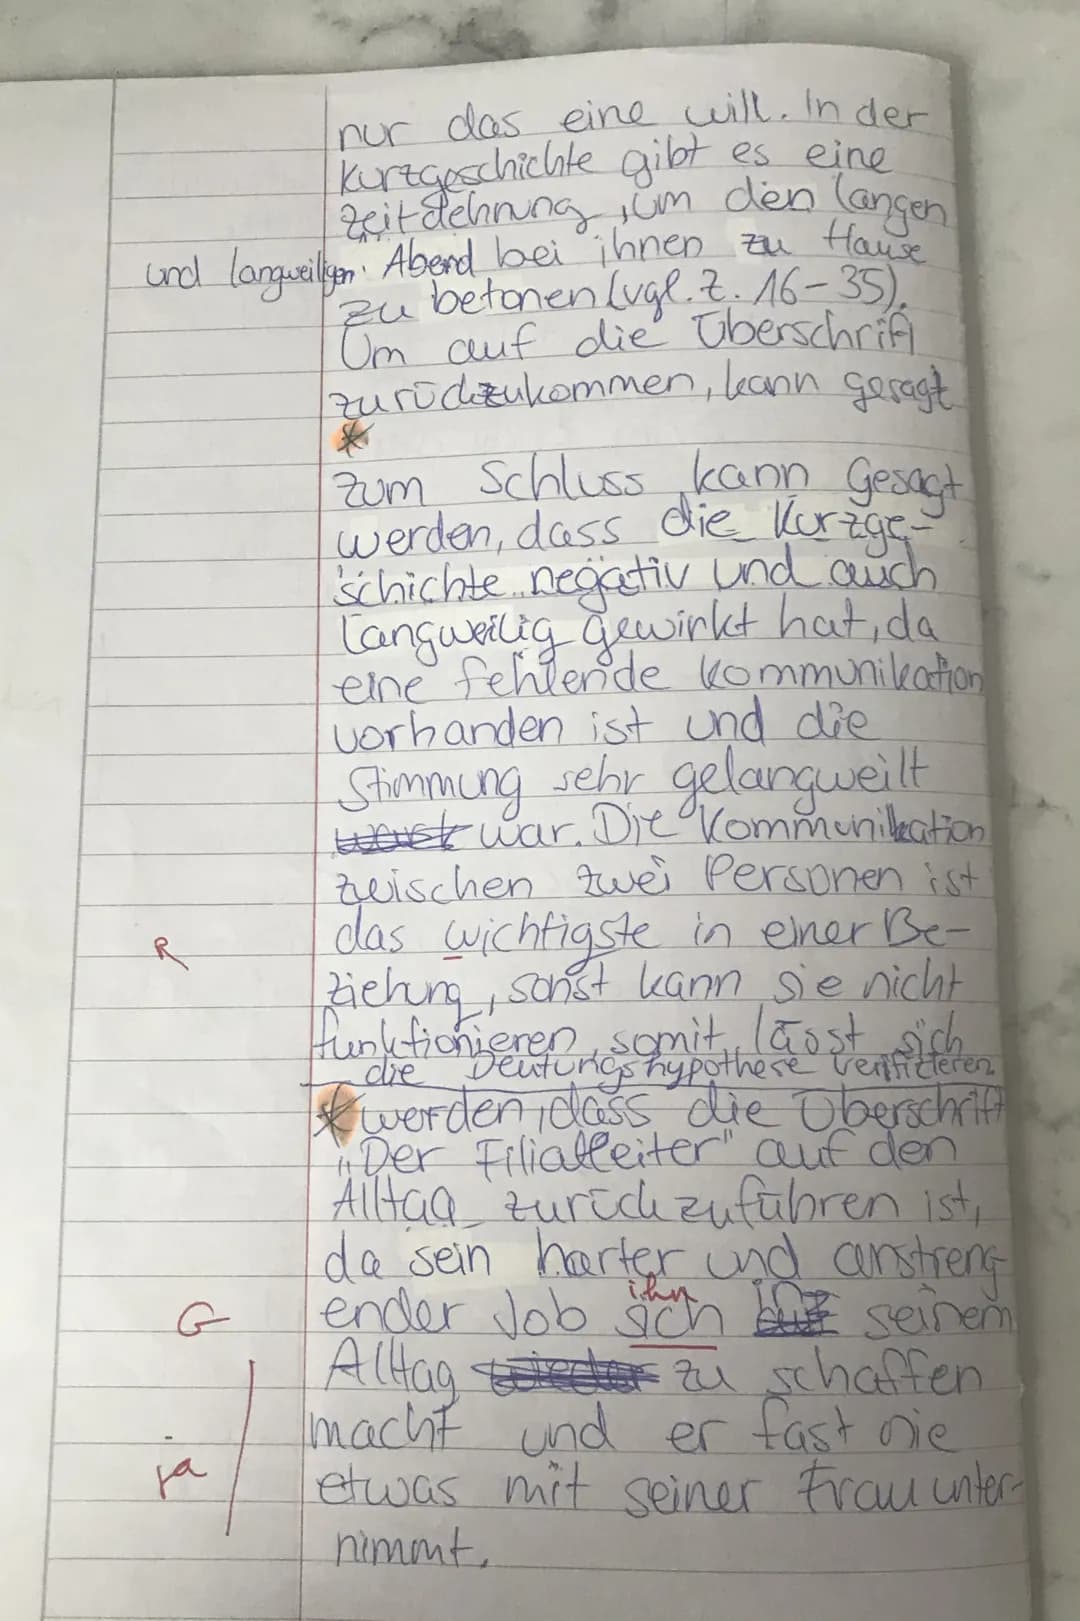 nur das eine will. In der
Kurzgeschichte gibt es eine
Zeitdehnung, um den langen
und langweiligen Abend bei ihnen zu Hause
zu betonen (vgl. Z. 16-35).
Um auf die Überschrift
zurückzukommen, kann gesagt
*
Zum Schluss kann Gesagt
werden, dass die Kurzge-
schichte negativ und auch
langweilig gewirkt hat, da
eine fehlende Kommunikation
vorhanden ist und die
Stimmung sehr gelangweilt
war. Die Kommunikation
zwischen zwei Personen ist
R das wichtigste in einer Be-
ziehung, sonst kann sie nicht
funktionieren, somit lässt sich
die Deutungshypothese verifizieren.
* werden, dass die Überschrift
"Der Filialleiter" auf den
Alltag zurückzuführen ist,
da sein harter und anstreng-
ihn
G ender Job sich in seinem
Alltag zu schaffen
macht und er fast nie
ja etwas mit seiner Frau unter-
nimmt.